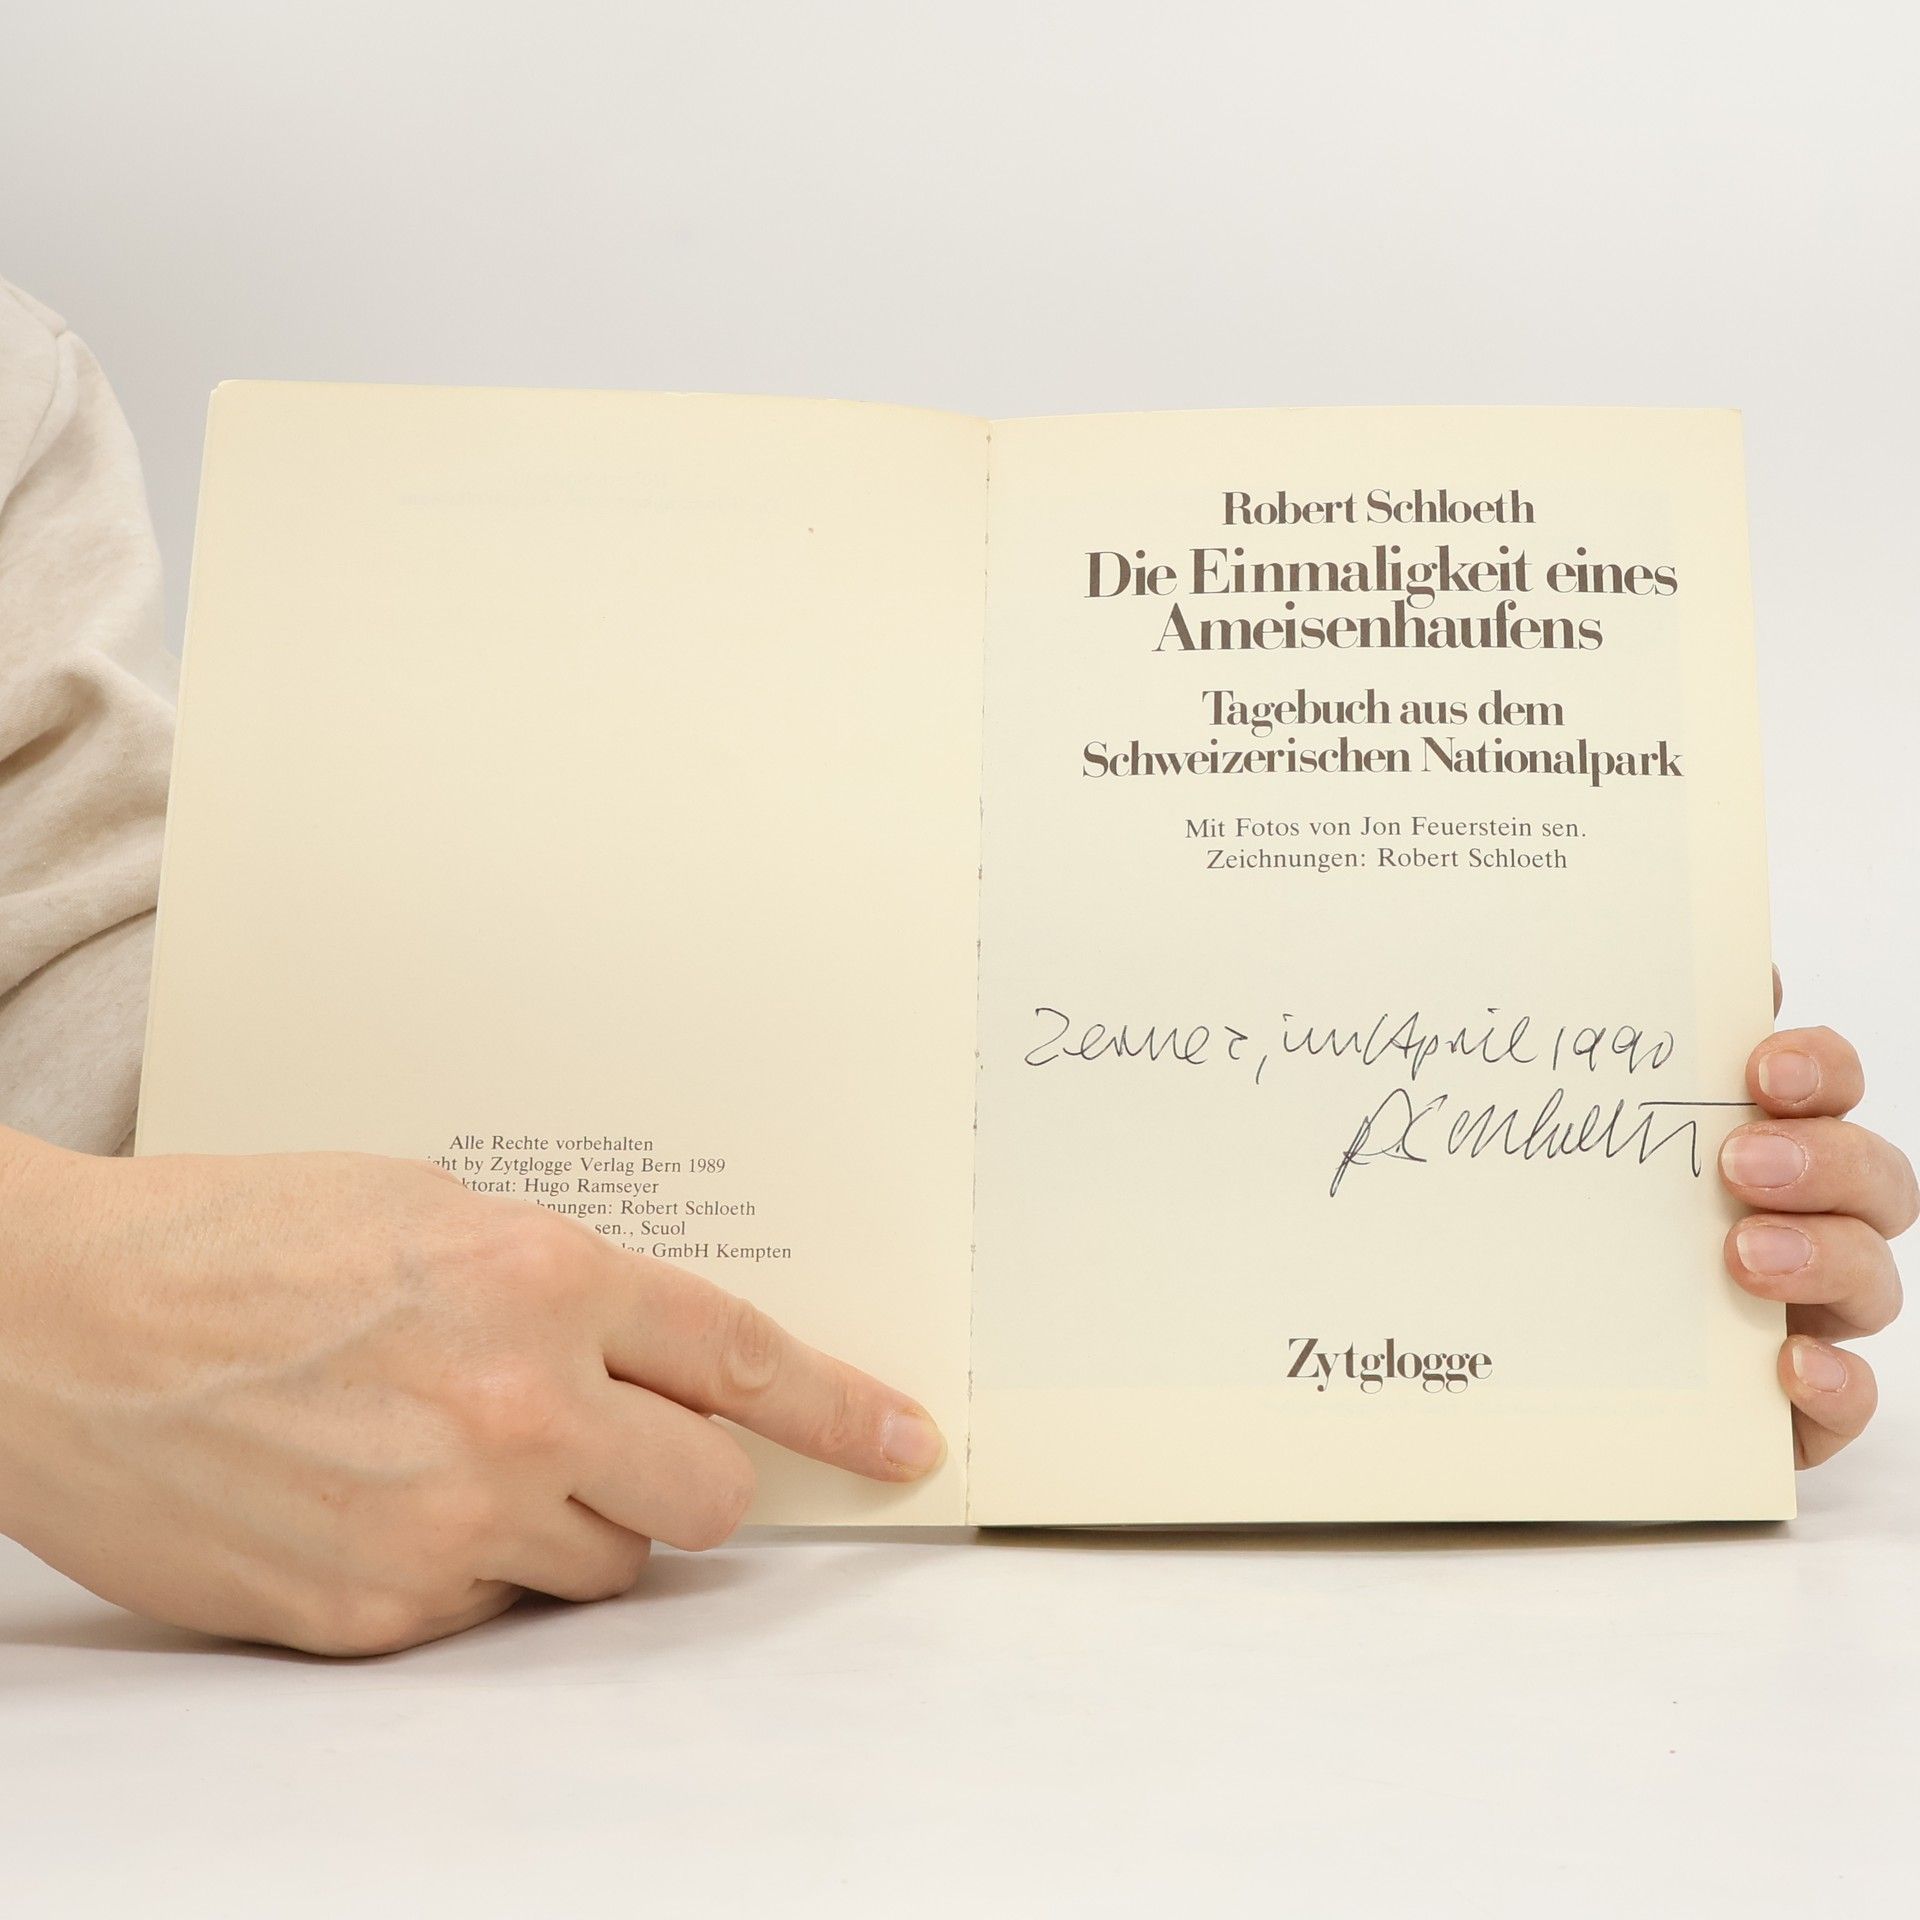 Alle Rechte vorbehalten
ght by Zytglogge Verlag Bern 1989
ktorat: Hugo Ramseyer
nungen: Robert Schloeth
sen., Scuol
lag GmbH Kempten
Robert Schloeth
Die Einmaligkeit eines
Ameisenhaufens
Tagebuch aus dem
Schweizerischen Nationalpark
Mit Fotos von Jon Feuerstein sen.
Zeichnungen: Robert Schloeth
Zernez, im April 1990
RSchloeth
Zytglogge